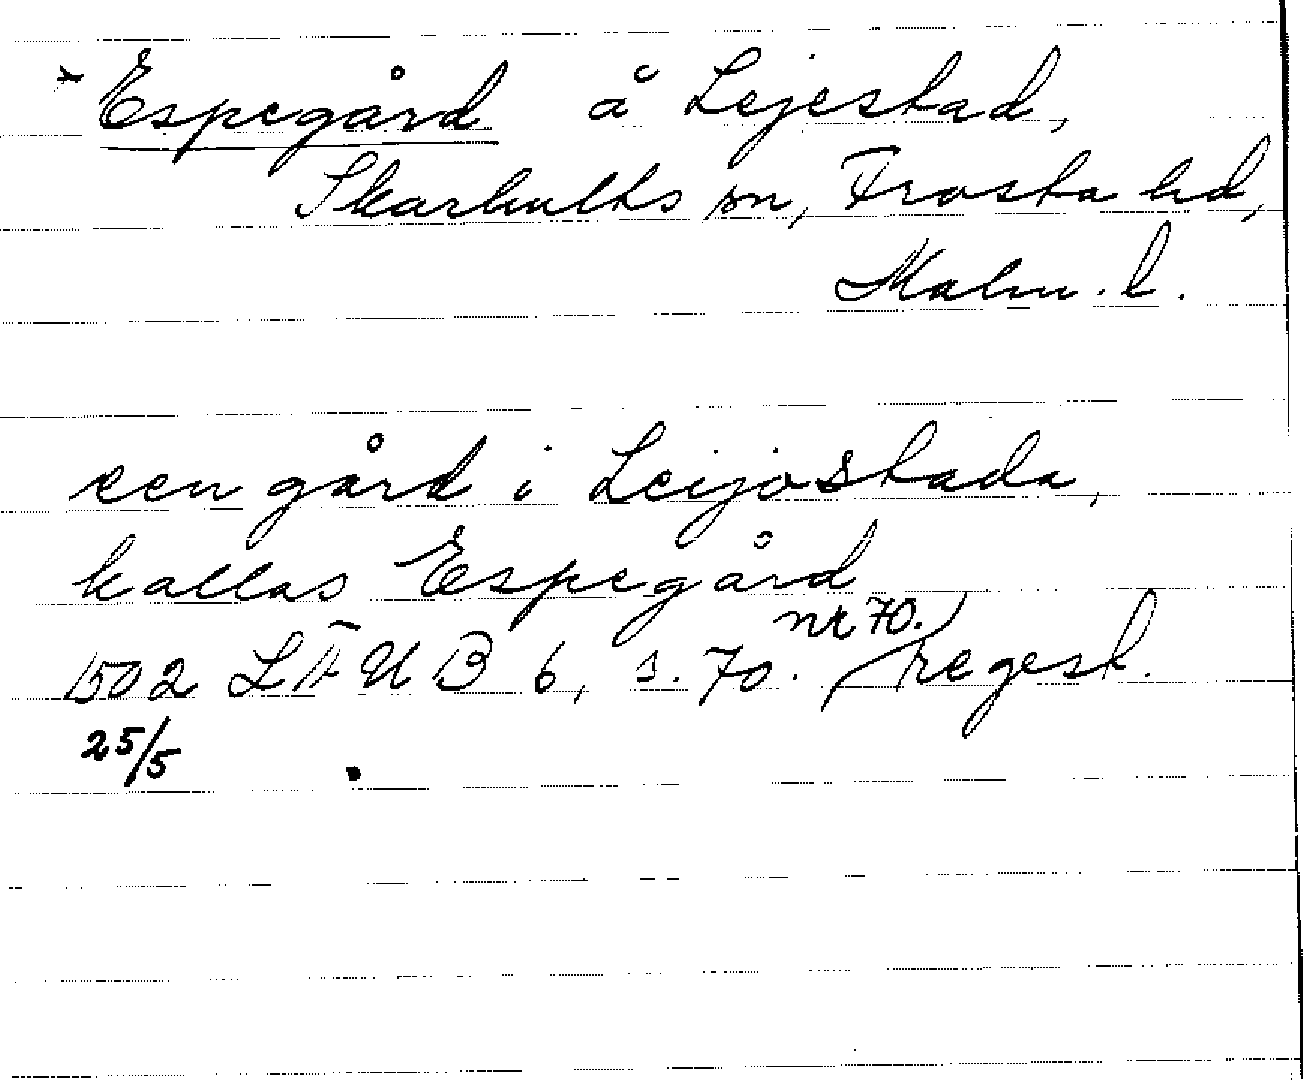 * Espegård å Lejestad,
Skarhults sn, Frosta hd,
Malm. l.
een gård i Leijostada,
kallas Espegård
nr 70.
1502 LÆUB 6, s. 70. regest.
25/5